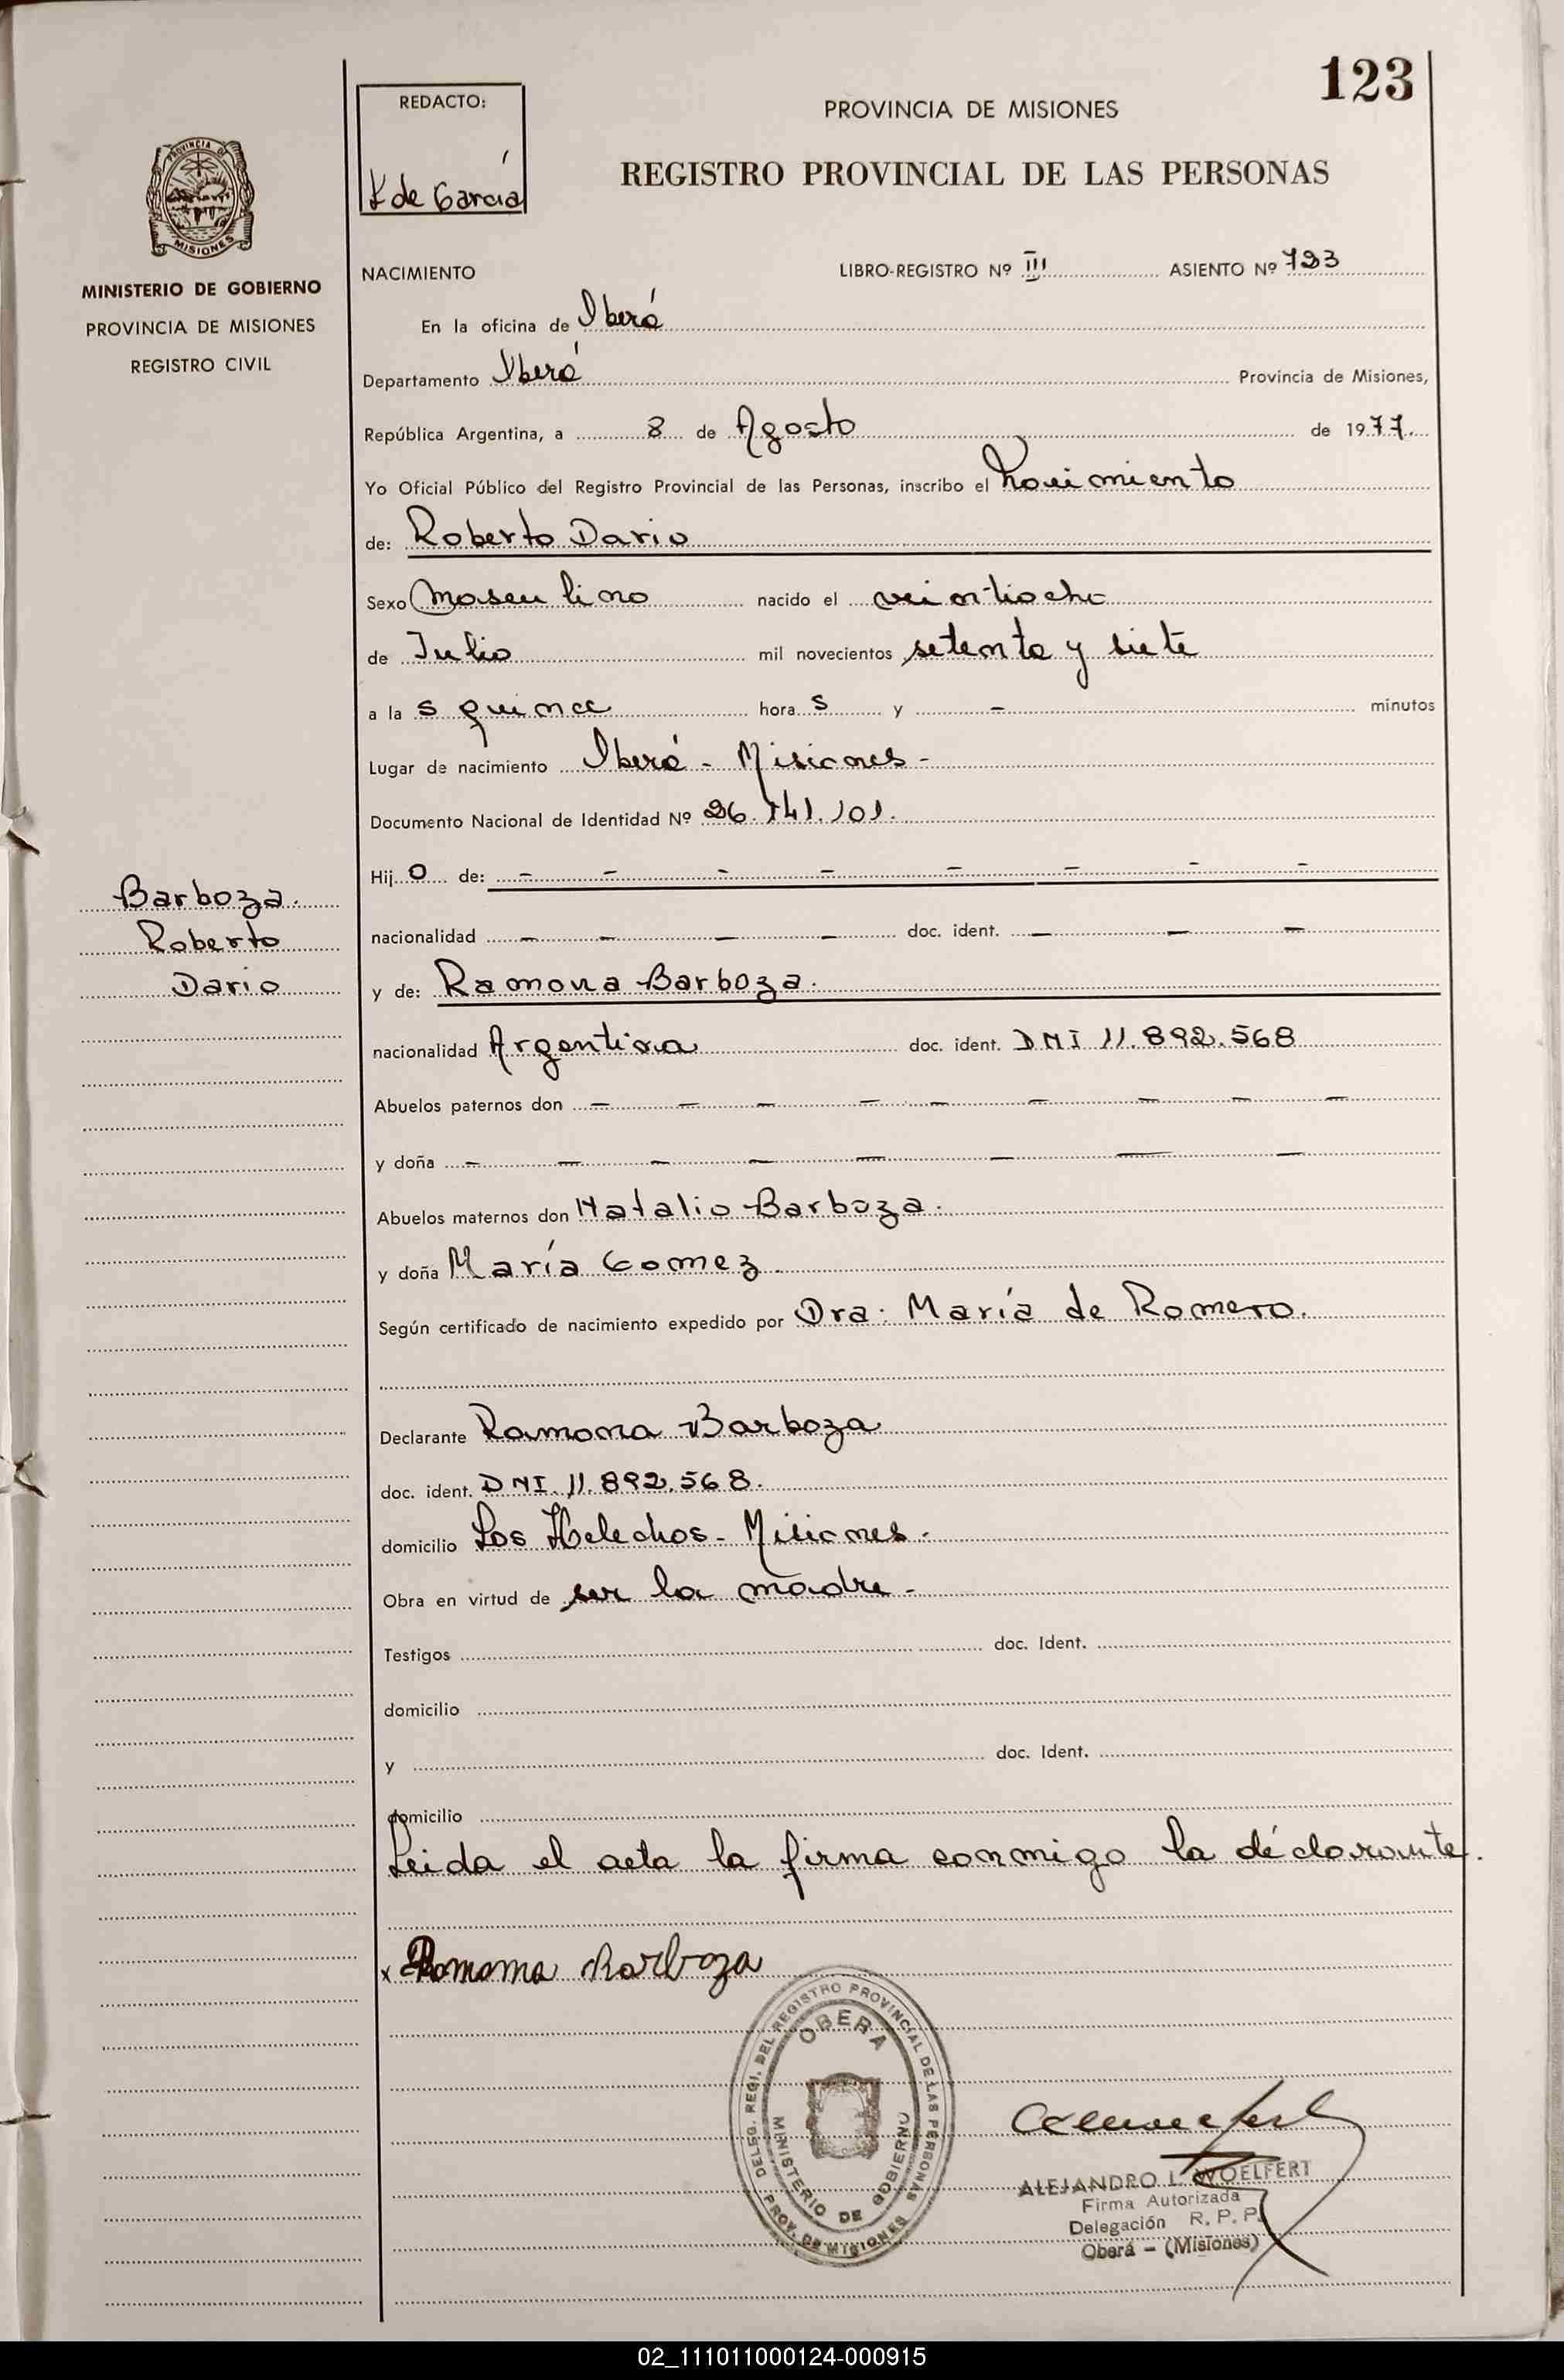 123
REDACTO:
K de García
PROVINCIA DE MISIONES
REGISTRO PROVINCIAL DE LAS PERSONAS
PROVINCIA DE
MISIONES
MINISTERIO DE GOBIERNO
PROVINCIA DE MISIONES
REGISTRO CIVIL
NACIMIENTO LIBRO-REGISTRO Nº III ASIENTO Nº 793
En la oficina de Oberá
Departamento Oberá Provincia de Misiones,
República Argentina, a 8 de Agosto de 1977.
Yo Oficial Público del Registro Provincial de las Personas, inscribo el nacimiento
de: Roberto Dario
Sexo masculino nacido el veintiocho
de Julio mil novecientos setenta y siete
a la s quince hora s y - minutos
Lugar de nacimiento Oberá - Misiones -
Documento Nacional de Identidad Nº 26.141.101.
Hij o de: - - - - - - -
Barboza.
Roberto
Dario
nacionalidad - - - - doc. ident. - - -
y de: Ramona Barboza.
nacionalidad Argentina doc. ident. DNI 11.892.568
Abuelos paternos don - - - - - - - - -
y doña - - - - - - - -
Abuelos maternos don Natalio Barboza.
y doña María Gomez.
Según certificado de nacimiento expedido por Dra. María de Romero.
Declarante Ramona Barboza
doc. ident. DNI. 11.892.568.
domicilio Los Helechos - Misiones.
Obra en virtud de ser la madre -
Testigos doc. Ident.
domicilio
y doc. Ident.
domicilio
Leida el acta la firma conmigo la declarante.
x Ramona Barboza
DELEG. REGI. DEL REGISTRO PROVINCIAL DE LAS PERSONAS
OBERA
MINISTERIO DE GOBIERNO
PROV. DE MISIONES
ALEJANDRO L. WOELFERT
Firma Autorizada
Delegación R. P. P.
Oberá - (Misiones)
02_111011000124-000915